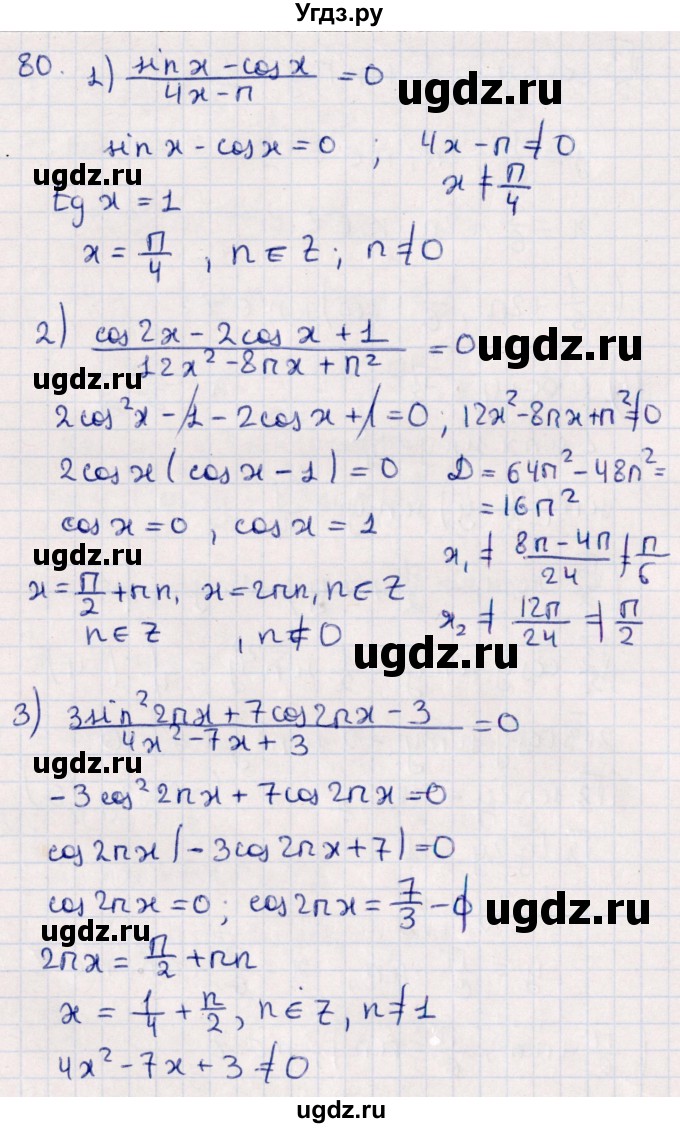 Угдз.ру
80. 1) (sin x - cos x)/(4x - π) = 0
ugdz.ru
sin x - cos x = 0 ; 4x - π ≠ 0
ugdz.ru
x ≠ π/4
tg x = 1
x = π/4 , n ∈ Z ; n ≠ 0
2) (cos 2x - 2cos x + 1)/(12x² - 8πx + π²) = 0
ugdz.ru
ugdz.ru
2cos²x - 1 - 2cos x + 1 = 0 ; 12x² - 8πx + π² ≠ 0
2cos x (cos x - 1) = 0 D = 64π² - 48π² =
= 16π²
cos x = 0 , cos x = 1
x₁ ≠ (8π - 4π)/24 ≠ π/6
x = π/2 + πn, x = 2πn, n ∈ Z
n ∈ Z , n ≠ 0
x₂ ≠ 12π/24 ≠ π/2
ugdz.ru
3) (3sin²2πx + 7cos2πx - 3)/(4x² - 7x + 3) = 0
ugdz.ru
-3cos²2πx + 7cos2πx = 0
cos2πx (-3cos2πx + 7) = 0
cos2πx = 0 ; cos2πx = 7/3 - ϕ
ugdz.ru
ugdz.ru
2πx = π/2 + πn
x = 1/4 + n/2 , n ∈ Z, n ≠ 1
4x² - 7x + 3 ≠ 0
ugdz.ru